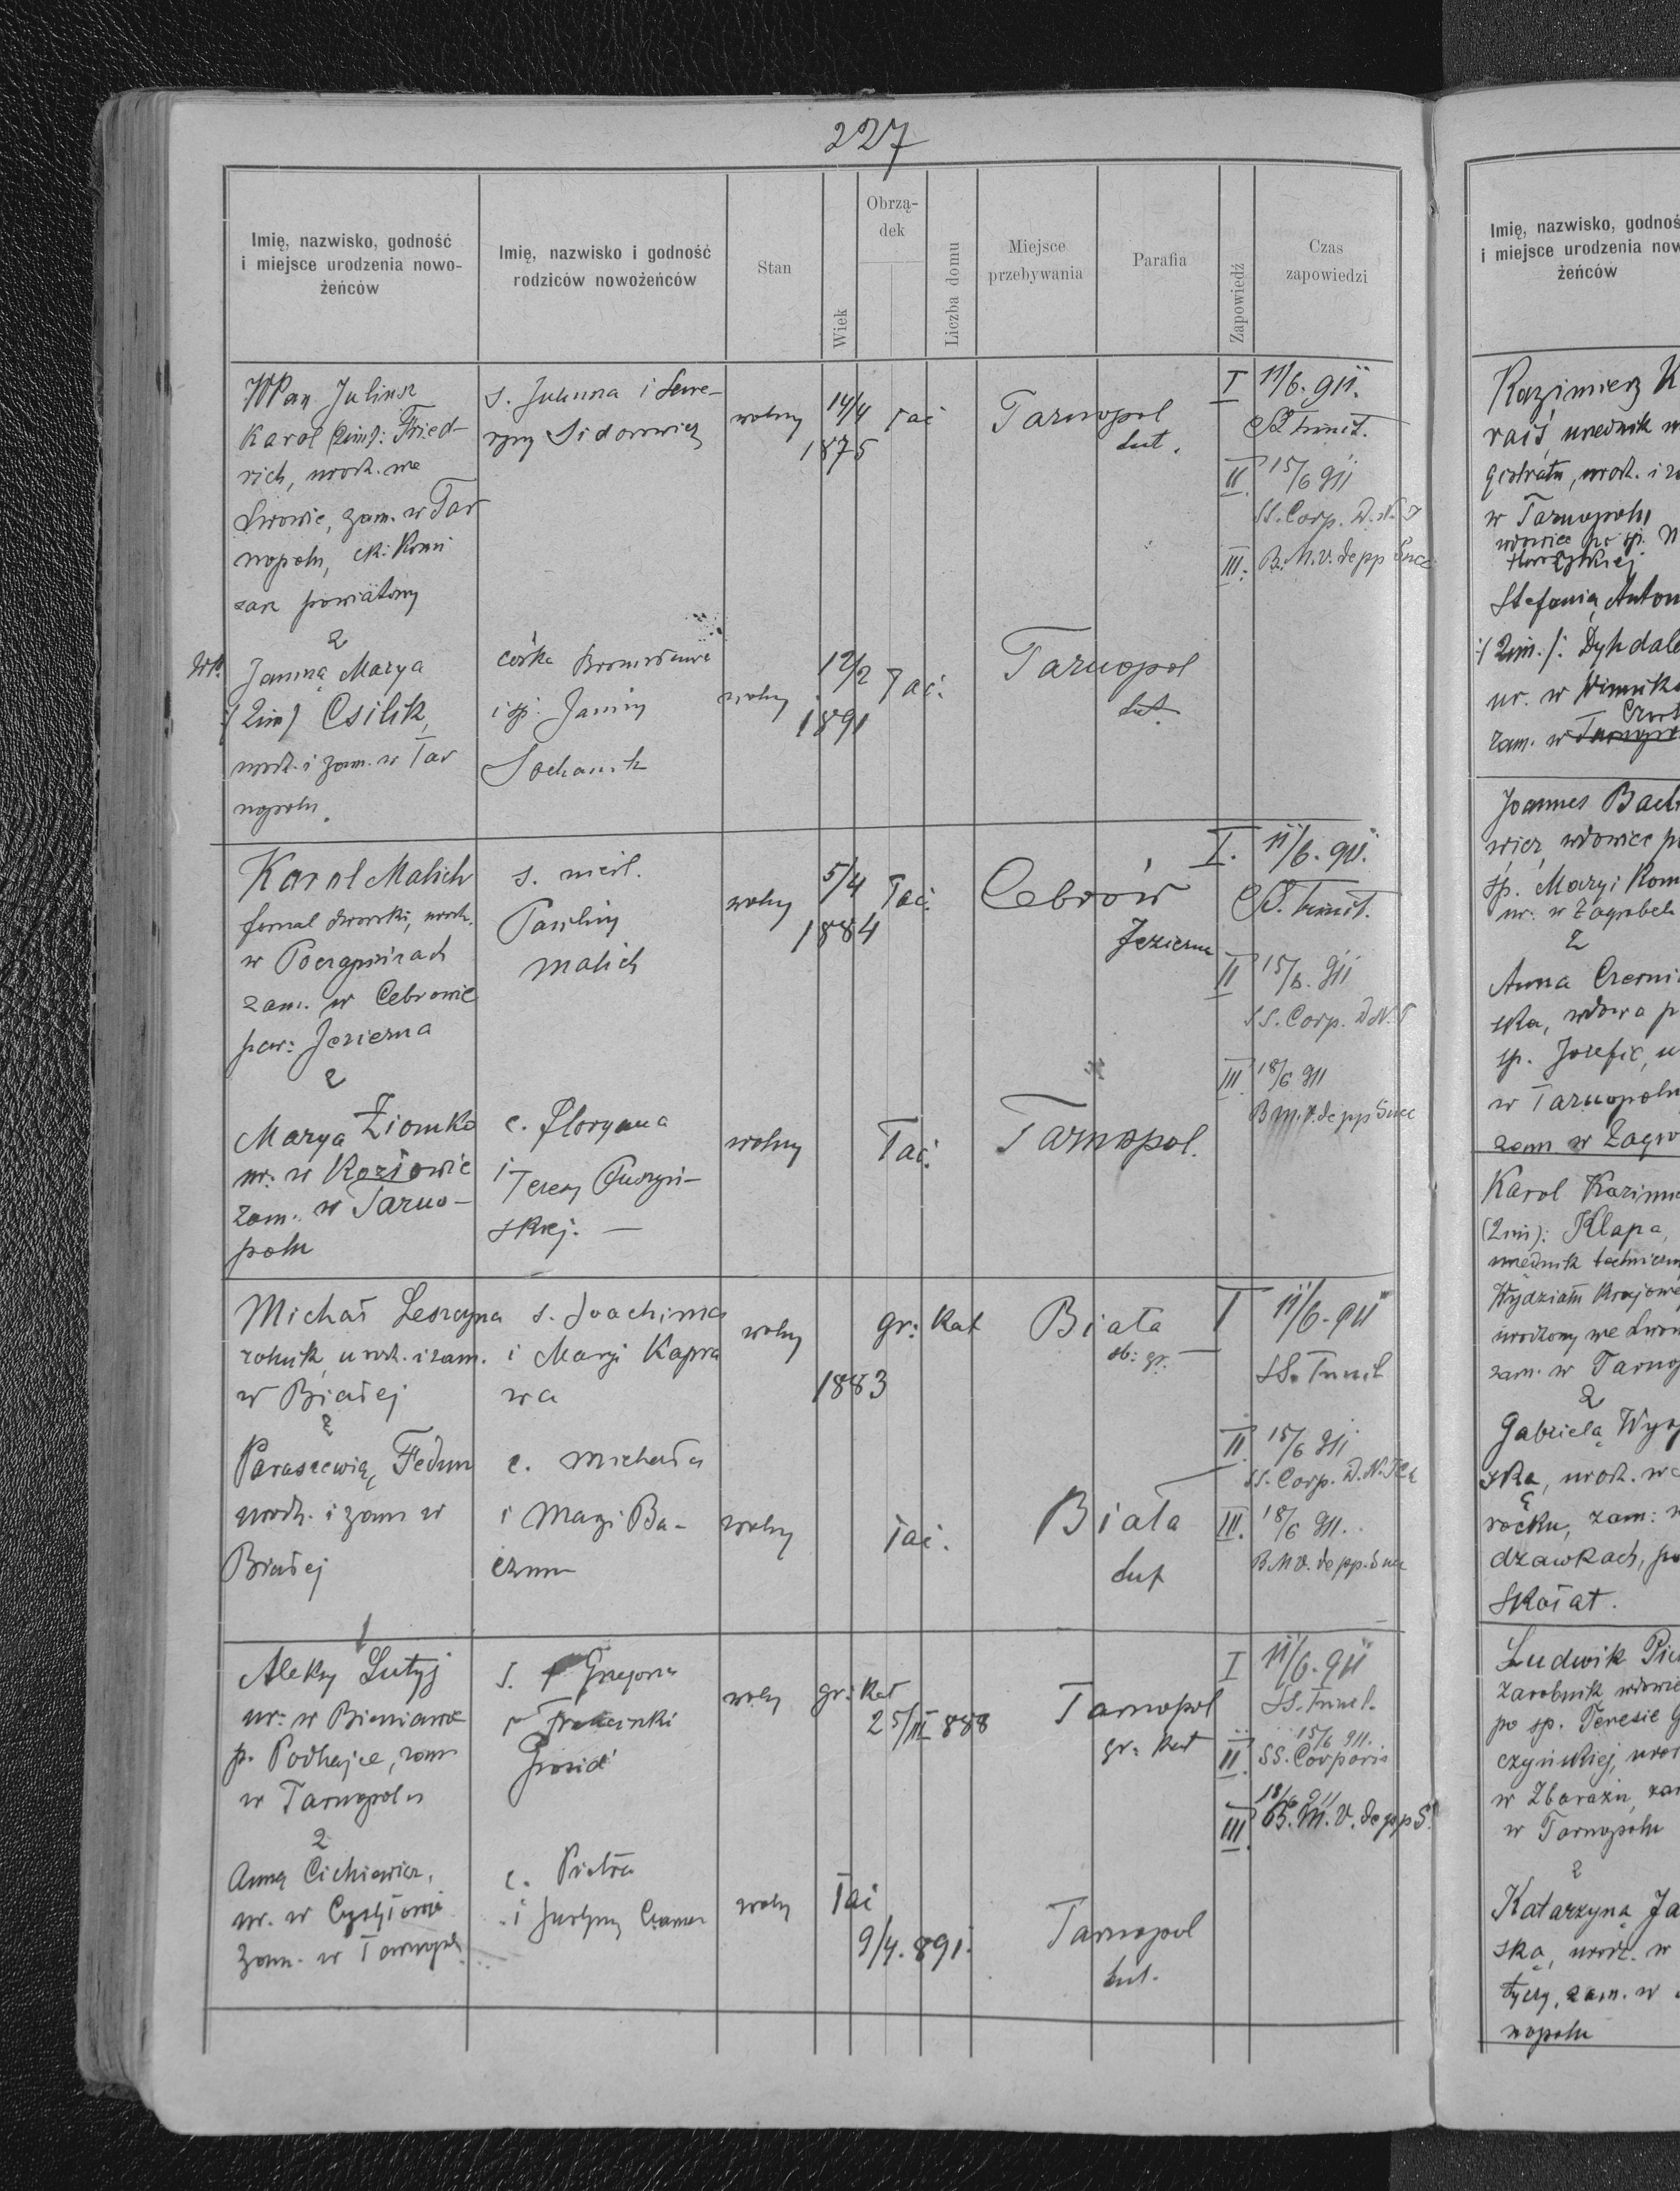 227
Imię, nazwisko, godność
i miejsce urodzenia nowo-
żeńców
Imię, nazwisko i godność
rodziców nowożeńców
Stan
Wiek
Obrzą-
dek
Liczba domu
Miejsce
przebywania
Parafia
Zapowiedź
Czas
zapowiedzi
WPan Juliusz
Karol (2im): Fried-
rich, urodz. we
Lwowie, zam. w Tar
nopolu, ck: Komi
sarz powiatowy
s. Juliusza i Sewe-
ryny Sidorowicz
wolny
14/4
1875
łać
Tarnopol
tut.
I 11/6. 911.
SS. Trinit.
II 15/6 911
SS. Corp. D. N. J
III: B. M. V. de pp Succ
z
WP. Janiną Marya
:/ 2im) Csilik,
urodz. i zam. w Tar
nopolu.
córka Bronisława
i śp. Janiny
wolny
12/2
1891
łać:
Tarnopol
tut.
Karol Malich
fornal dworski, urodz.
w
zam. w Cebrowie
par: Jezierna
s. nieśl.
Pauliny
Malich
wolny
5/4
1884
łać:
Cebrów
Jezierna
I. 11/6. 911.
SS. Trinit.
II 15/6. 911
SS. Corp. D N. J
III 18/6 911
B M. V. de pp Succ
z
Marya Ziomko
ur: w Kozłowie
zam. w Tarno-
polu
c. Floryana
i Teresy
skiej. —
wolny
łać:
Tarnopol.
Michał Leszczyna
rolnik, urodz. i zam.
w Białej
s. Joachima
i Maryi Kapra
wa
wolny
1883
gr: kat
Biała
ob: gr.
I 11/6. 911
SS. Trinit
II 15/6 911
SS. Corp. D. N. J Ch
III. 18/6 911.
B M V. de pp. Succ
z
Paraszewią Fedun
urodz. i zam w
Białej
c. Michała
i Maryi Ba-
wolny
łać.
Biała
tut
Aleksy Lutyj
ur: w Bieniawie
p. Podhajce, zam
w Tarnopolu
s. Grzegorza
wolny
gr: kat
25/III 888
Tarnopol
gr: kat
I 11/6. 911
SS. Trinit.
II. 15/6 911.
SS. Corporis
III. 18/6 911
B. M. V. de pp S.
z
Anną Cichiewicz,
ur. w
zam. w Tarnopolu
c. Piotra
i Justyny
wolny
łać
9/4. 891.
Tarnopol
tut.
Imię, nazwisko, godnoś
i miejsce urodzenia now
żeńców
Kazimierz K
raiś urzednik m
gistratu, urodz. i z
w Tarnopolu
wdowiec po śp. M
Stefanią Anton
:/ 2im./: Dyhdale
ur. w Winnik
zam. w
Joannes Bach
wicz, wdowiec p
śp. Maryi Rom
ur: w Zagrobel
z
Anna Czerni
ska, wdowa p
śp. Jozefie, u
w Tarnopolu
zam w Zagro
Karol Kazimi
(2im): Klapa,
urzędnik techniczn
Wydziału Krajowe
urodzony we Lwow
zam. w Tarnop
z
Gabrielą Wys
ska, urodz. w
rocku, zam: w
dzawkach, po
Skałat.
Ludwik Pie
zarobnik, wdowie
po śp. Teresie G
czyńskiej, uro
w Zbarażu, zam
w Tarnopolu
z
Katarzyną Ja
ską, urodz. w
zam. w
nopolu